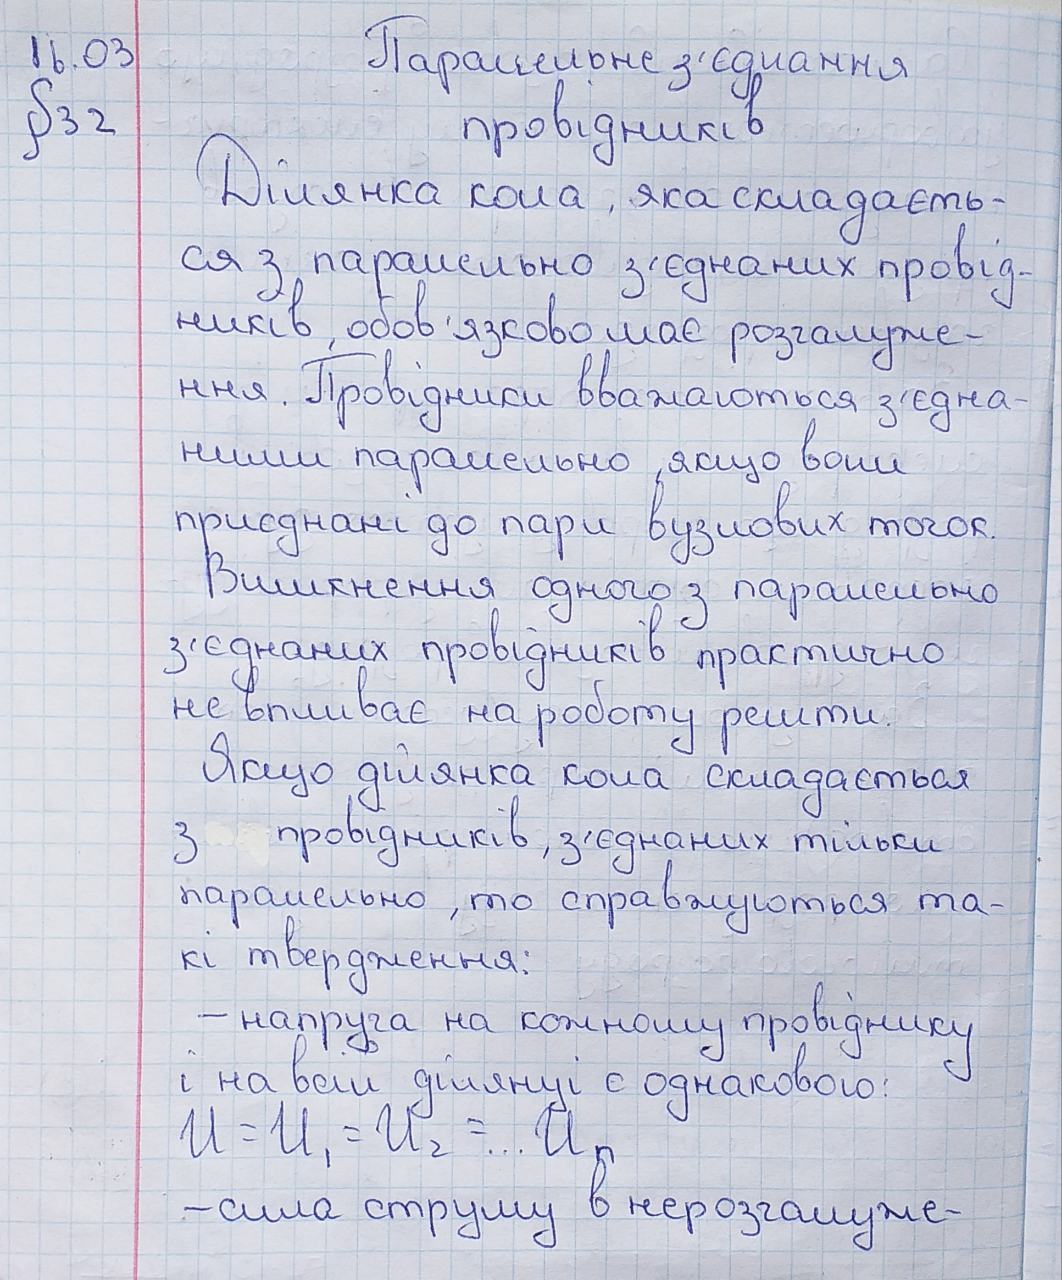 16.03
§32
Паралельне з'єднання
провідників
Ділянка кола, яка складаєть-
ся з паралельно з'єднаних провід-
ників, обов'язково має розгалуже-
ння. Провідники вважаються з'єдна-
ними паралельно, якщо вони
приєднані до пари вузлових точок.
Вимкнення одного з паралельно
з'єднаних провідників практично
не впливає на роботу решти.
Якщо ділянка кола складається
з провідників, з'єднаних тільки
паралельно, то справджуються та-
кі твердження:
- напруга на кожному провіднику
і на всій ділянці є однаковою:
U = U₁ = U₂ = ... Uₙ
- сила струму в нерозгалуже-